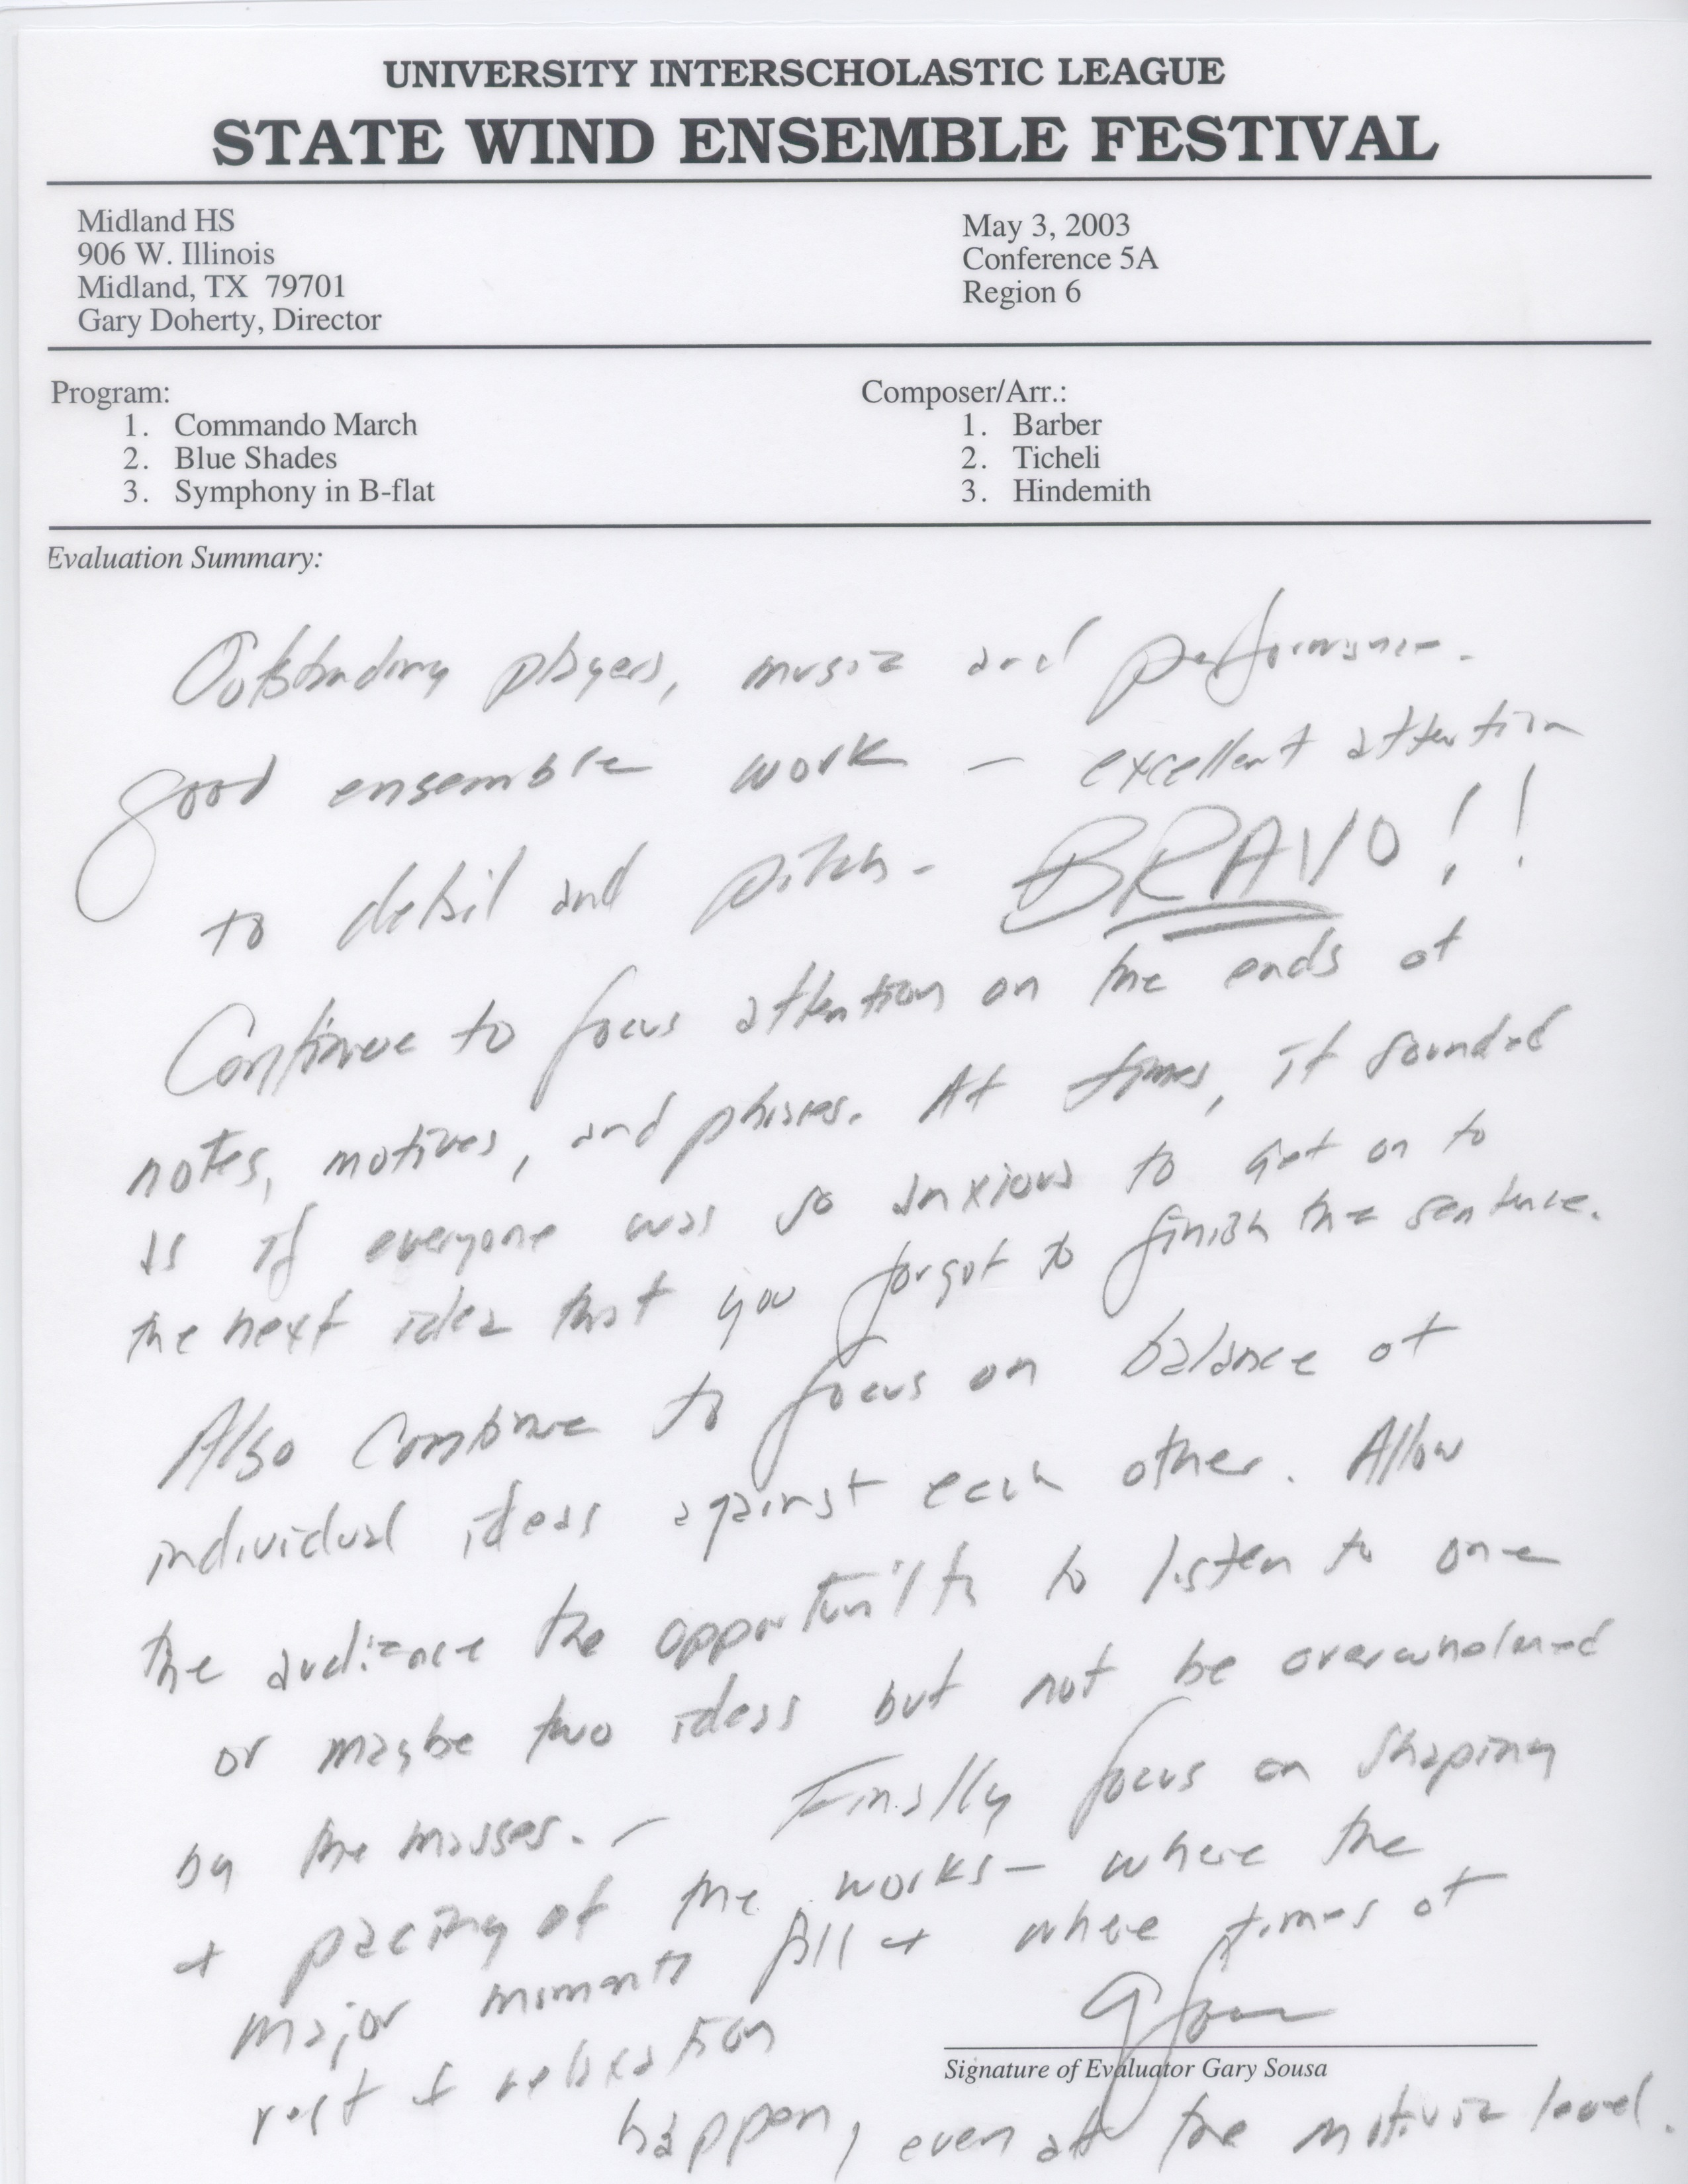 UNIVERSITY INTERSCHOLASTIC LEAGUE
STATE WIND ENSEMBLE FESTIVAL
Midland HS
906 W. Illinois
Midland, TX 79701
Gary Doherty, Director
May 3, 2003
Conference 5A
Region 6
Program:
1. Commando March
2. Blue Shades
3. Symphony in B-flat
Composer/Arr.:
1. Barber
2. Ticheli
3. Hindemith
Evaluation Summary:
Outstanding players, music and performance.
good ensemble work — excellent attention
to detail and pitch - BRAVO!!
Continue to focus attention on the ends of
notes, motives, and phrases. At times, it sounded
as if everyone was so anxious to get on to
the next idea that you forgot to finish the sentence.
Also continue to focus on balance of
individual ideas against each other. Allow
the audience the opportunity to listen to one
or maybe two ideas but not be overwhelmed
by the masses. — Finally focus on shaping
+ pacing of the works — where the
major moments fall + where times of
rest + relaxation
happen, even at the motivic level.
G Sousa
Signature of Evaluator Gary Sousa